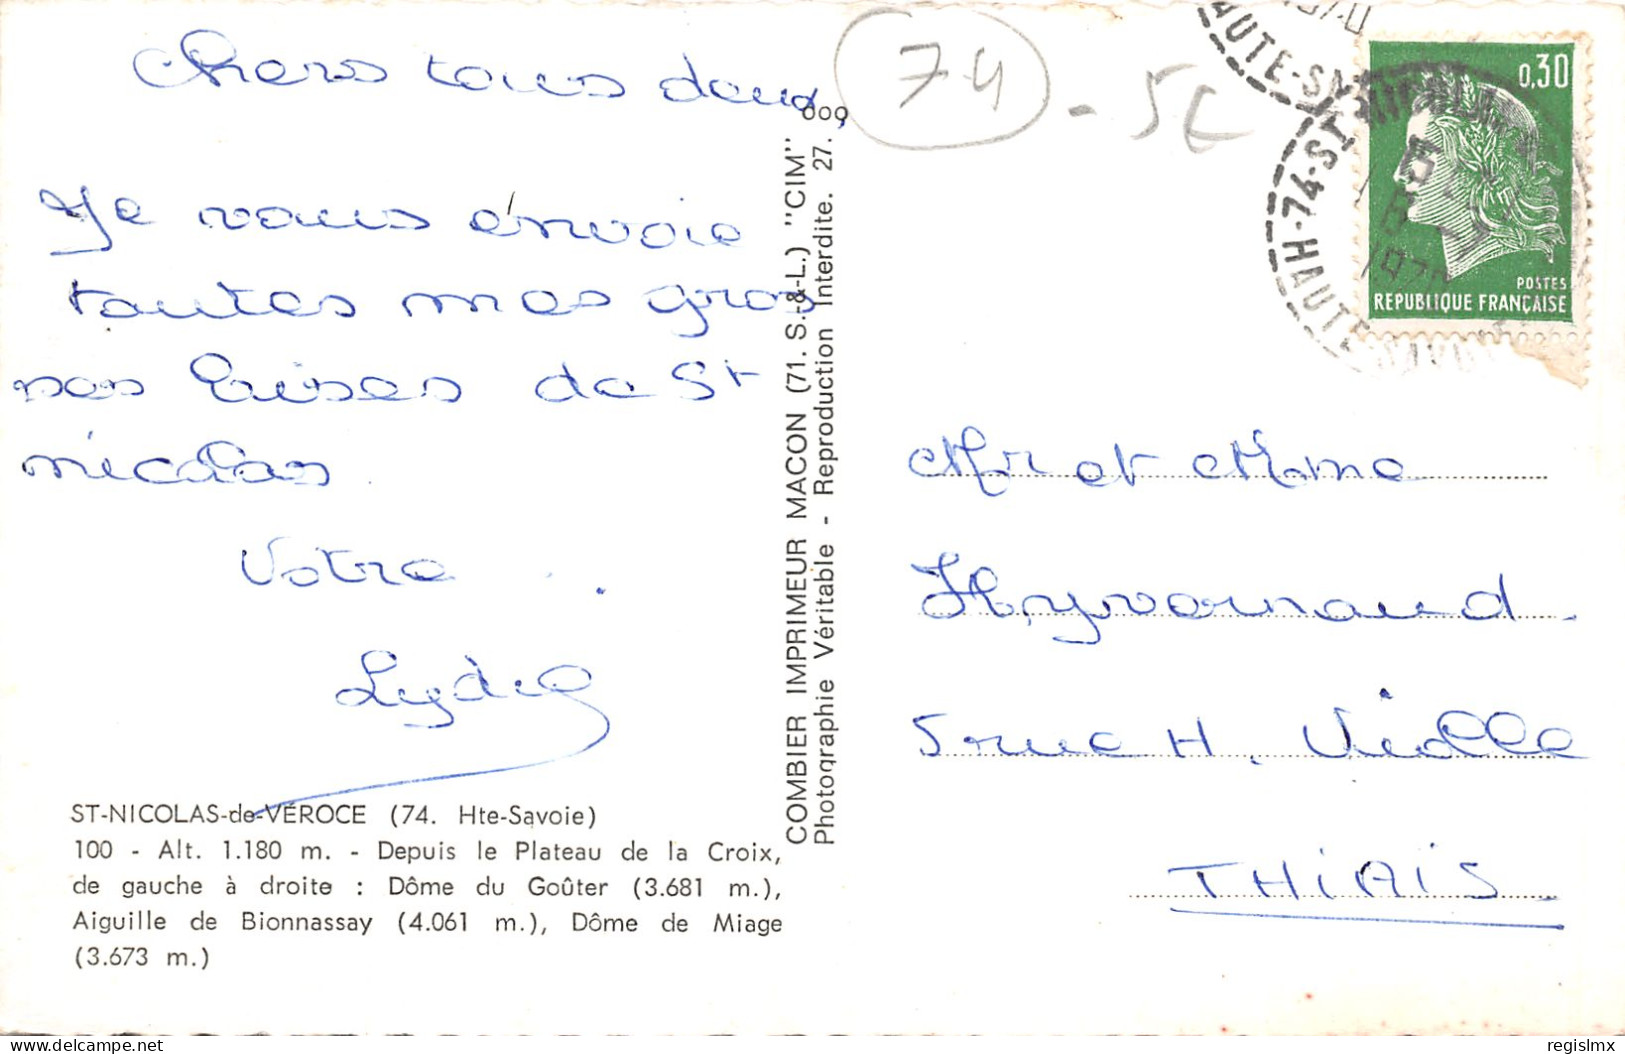 Chers tous deux,
Je vous envoie
toutes mes gros
ses bises de St
nicolas
Votre
Lydie
ST-NICOLAS-de-VÉROCE (74. Hte-Savoie)
100 - Alt. 1.180 m. - Depuis le Plateau de la Croix,
de gauche à droite : Dôme du Goûter (3.681 m.),
Aiguille de Bionnassay (4.061 m.), Dôme de Miage
(3.673 m.)
COMBIER IMPRIMEUR MACON (71. S.-&-L.) "CIM"
Photographie Véritable - Reproduction Interdite. 27.
74 - 5€
0,30
POSTES
REPUBLIQUE FRANÇAISE
74-ST
HAUTE
1970
Mr et Mme
Heyvernaud
5 rue H. Vielle
THIAIS
delcampe.net
regislmx